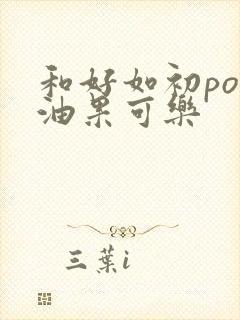 和好如初po
油果可樂
三葉i